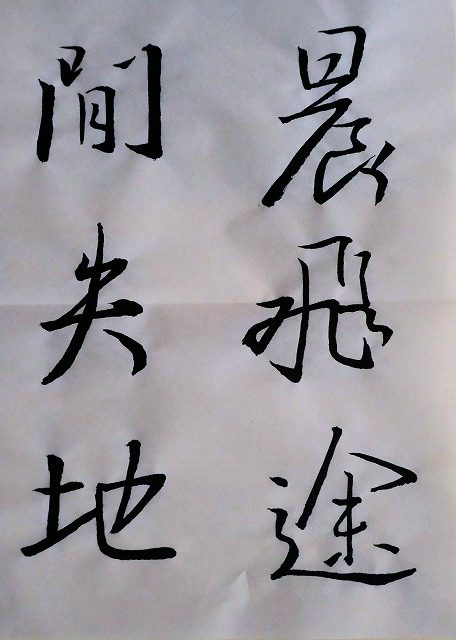 晨飛途
間失地